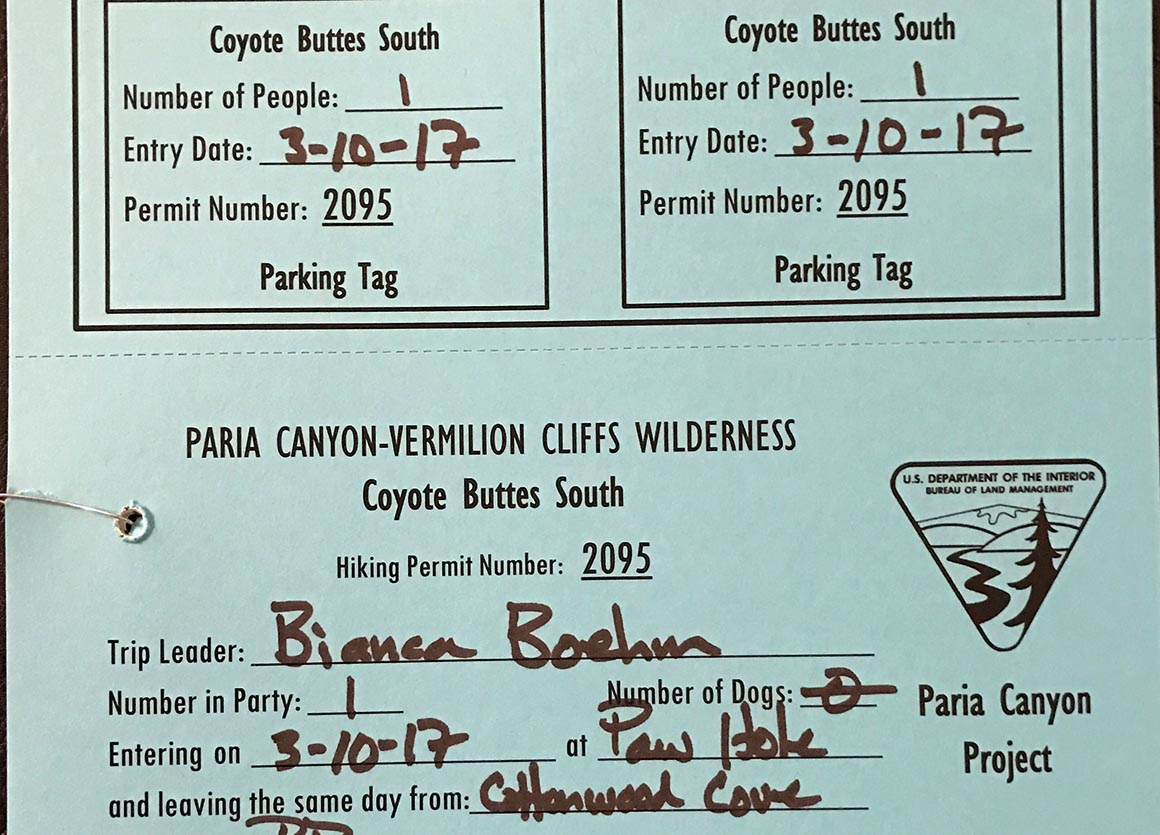 Coyote Buttes South
Number of People: 1
Entry Date: 3-10-17
Permit Number: 2095
Parking Tag
Coyote Buttes South
Number of People: 1
Entry Date: 3-10-17
Permit Number: 2095
Parking Tag
PARIA CANYON-VERMILION CLIFFS WILDERNESS
Coyote Buttes South
Hiking Permit Number: 2095
U.S. DEPARTMENT OF THE INTERIOR
BUREAU OF LAND MANAGEMENT
Trip Leader: Bianca Boehm
Number in Party: 1 Number of Dogs: 0
Entering on 3-10-17 at Paw Hole
and leaving the same day from: Cottonwood Cove
Paria Canyon
Project